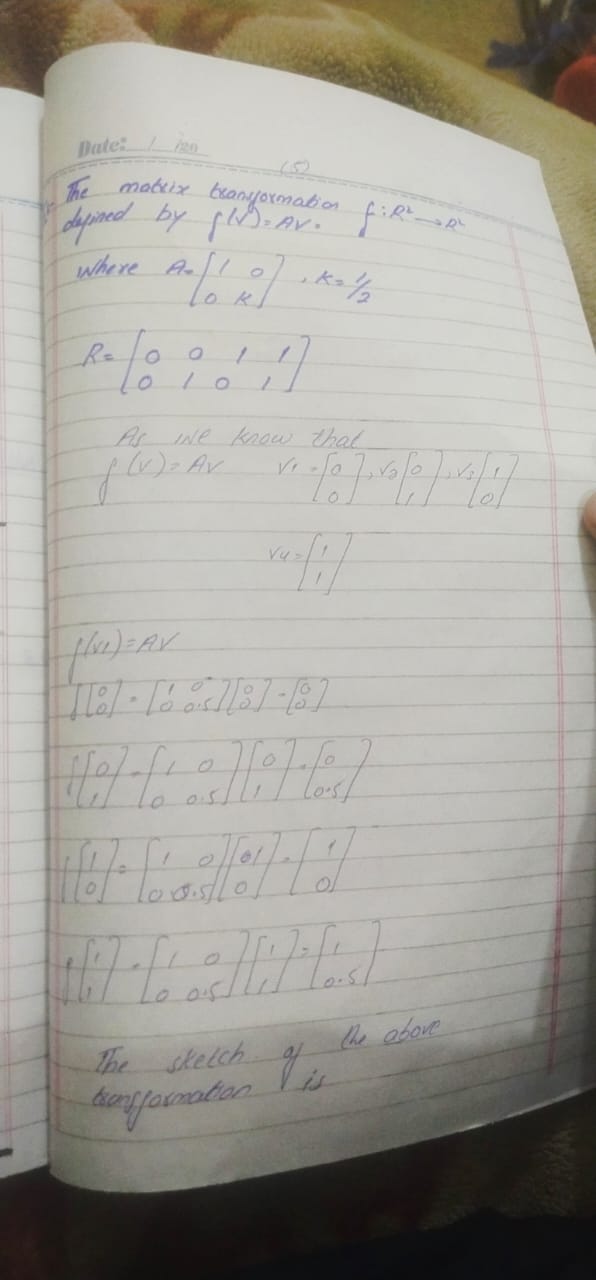 Date: / /20
(5)
The matrix transformation f: R² → R²
defined by f(V) = AV.
Where A = [1 0; 0 K], K = 1/2
R = [0 0 1 1; 0 1 0 1]
As we know that
f(V) = AV V1 = [0; 0], V2 [0; 1], V3 [1; 0]
V4 = [1; 1]
f(V1) = AV
f[0; 0] = [1 0; 0 0.5][0; 0] = [0; 0]
f[0; 1] = [1 0; 0 0.5][0; 1] = [0; 0.5]
f[1; 0] = [1 0; 0 0.5][1; 0] = [1; 0]
f[1; 1] = [1 0; 0 0.5][1; 1] = [1; 0.5]
The sketch of the above
transformation is